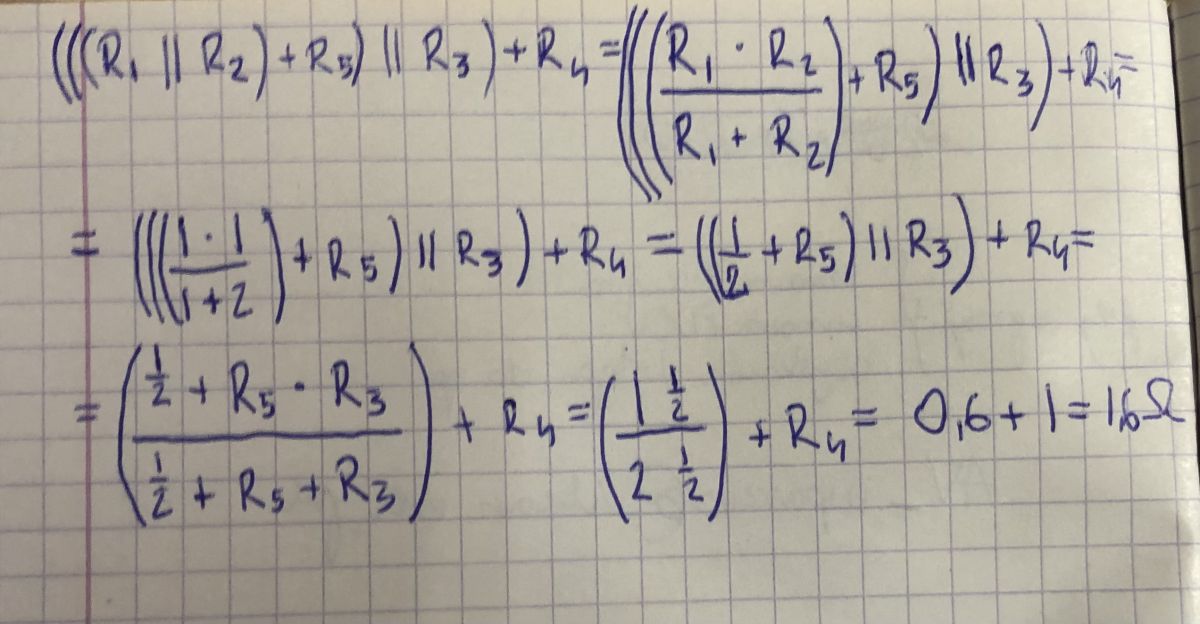 (((R₁ || R₂) + R₅) || R₃) + R₄ = (((R₁ · R₂ / R₁ + R₂) + R₅) || R₃) + R₄ =
= (((1 · 1 / 1 + 2) + R₅) || R₃) + R₄ = ((1/2 + R₅) || R₃) + R₄ =
= (1/2 + R₅ · R₃ / 1/2 + R₅ + R₃) + R₄ = (1 1/2 / 2 1/2) + R₄ = 0,6 + 1 = 1,6 Ω